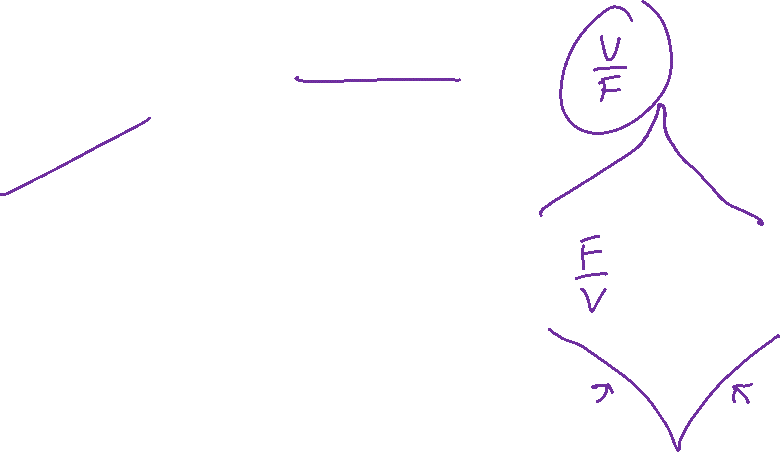 V
F
F
V